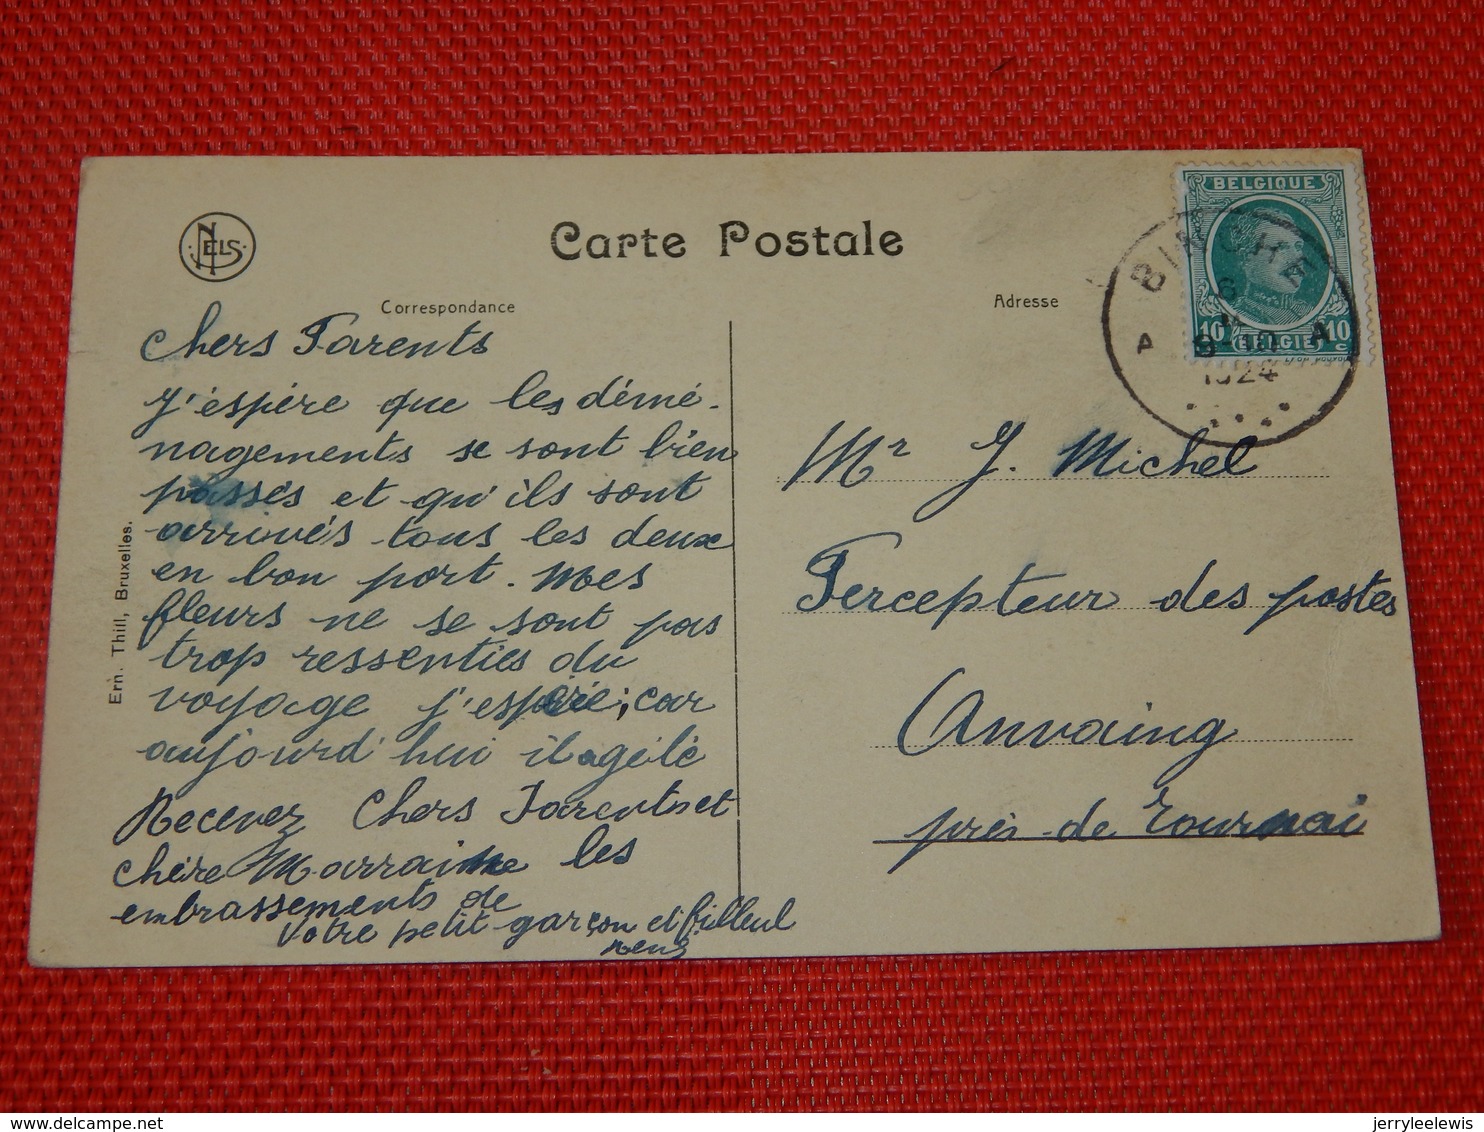 NELS
Carte Postale
Correspondance
Adresse
BELGIQUE
10 10
c
BELGIE
BINCHE
A A
8
9-10
1924
Chers Parents
J'éspére que les démé-
nagements se sont bien
passés et qu'ils sont
arrivés tous les deux
en bon port. Mes
fleurs ne se sont pas
trop ressenties du
voyage j'espére; car
aujourd'hui il a gelé
Recevez Chers Parents et
chère Marraine les
embrassements de
votre petit garçon et filleul
Mr J. Michel
Percepteur des postes
Anvaing
près de Tournai
Ern. Thill, Bruxelles.
jerryleelewis